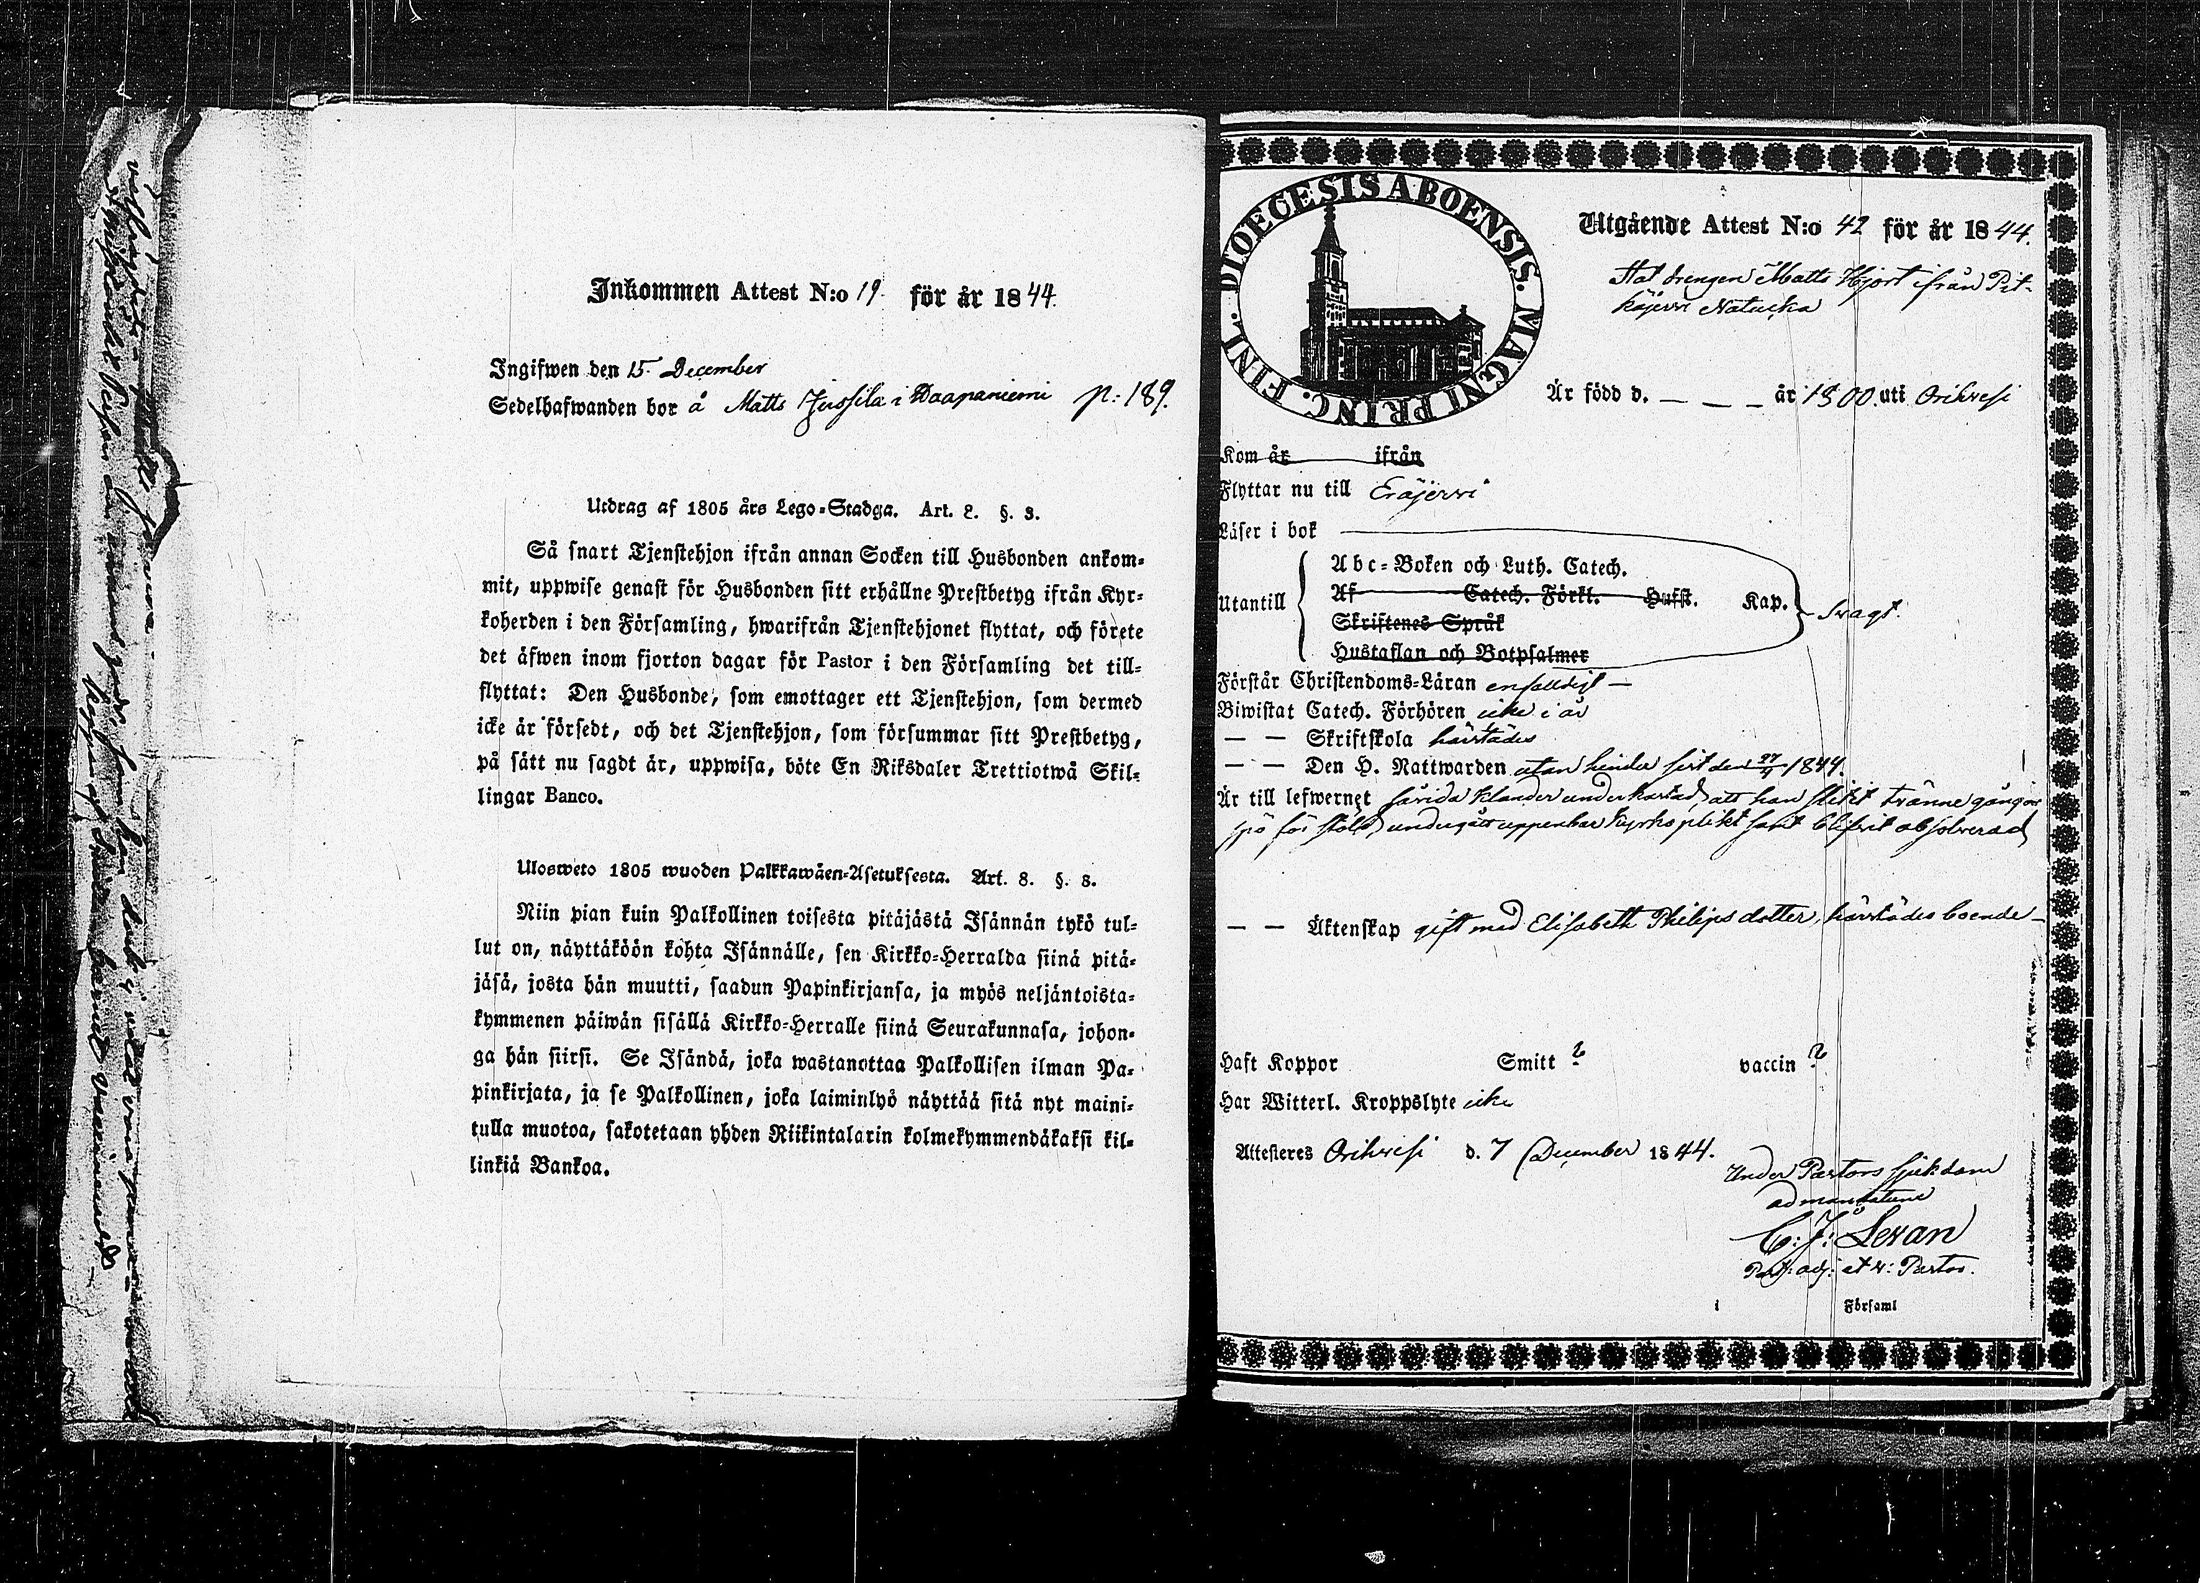 Inkommen Attest N:o 19. för år 1844.
Ingifwen den 15. December
Sedelhafwanden bor å Matts Jussila i Haapaniemi p: 189.
Utdrag af 1805 års Lego-Stadga. Art. 8. §. 8.
Så snart Tjenstehjon ifrån annan Socken till Husbonden ankom-
mit, uppwise genast för Husbonden sitt erhållne Prestbetyg ifrån Kyr-
koherden i den Församling, hwarifrån Tjenstehjonet flyttat, och förete
det äfwen inom fjorton dagar för Pastor i den Församling det till-
flyttat: Den Husbonde, som emottager ett Tjenstehjon, som dermed
icke är försedt, och det Tjenstehjon, som försummar sitt Prestbetyg,
på sätt nu sagdt är, uppwisa, böte En Riksdaler Trettiotwå Skil-
lingar Banco.
Ulosweto 1805 wuoden Palkkawäen-Asetuksesta. Art. 8. §. 8.
Niin pian kuin Palkollinen toisesta pitäjästä Isännän tykö tul-
lut on, näyttäköön kohta Isännälle, sen Kirkko-Herralda siinä pitä-
jäsä, josta hän muutti, saadun Papinkirjansa, ja myös neljäntoista-
kymmenen päiwän sisällä Kirkko-Herralle siinä Seurakunnasa, johon-
ga hän siirsi. Se Isändä, joka wastanottaa Palkollisen ilman Pa-
pinkirjata, ja se Palkollinen, joka laiminlyö näyttää sitä nyt maini-
tulla muotoa, sakotetaan yhden Riikintalarin kolmekymmendäkaksi kil-
linkiä Bankoa.
DIOECESIS ABOENSIS. MAGNI PRINC. FINL.
Utgående Attest N:o 42 för år 1844.
Stat drengen Matts Hjort ifrån Pit-
käjervi
Är född d. — — — år 1800 uti Orihvesi
Kom år ifrån
Flyttar nu till Eräjervi
Läser i bok
Abc-Boken och Luth. Catech.
Utantill Af Catech. Förkl. Husst. Kap. svagt.
Skriftenes Språk
Hustaflan och Botpsalmer
Förstår Christendoms-Läran enfalldigt —
Biwistat Catech. Förhören icke i år
— — Skriftskola härstädes
— — Den H. Nattwarden utan hinder sist den 27/4 1844.
Är till lefwernet så vida klander underkastad, att han slitit tvänne gångor
spö för stöld, undergått uppenbar kyrkoplikt samt blifvit absolverad
— — Äktenskap gift med Elisabeth Philips dotter, härstädes boende —
Haft Koppor Smitt ? vaccin ?
Har Witterl. Kroppslyte icke
Attesteres Orihvesi d. 7 December 1844.
Under Pastors sjukdom
ad mandatum
C: J: Levan
Past: adj: et v: Pastor.
i Församl